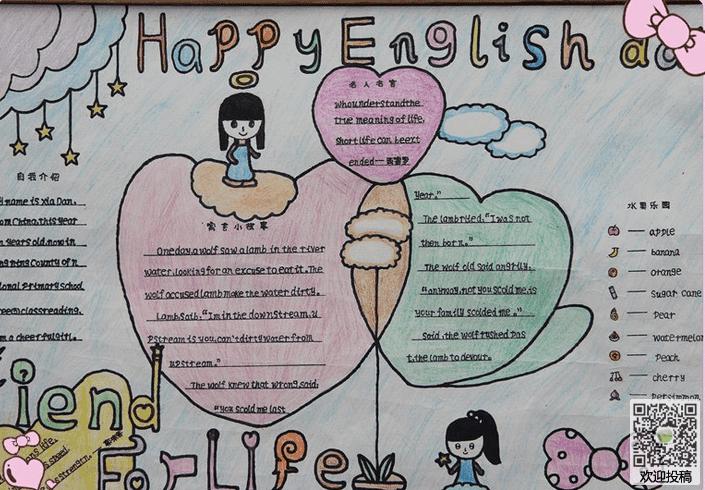 Happy English
名人名言
Whounderstandthe
true meaning of life,
Short life can beext
ended—
自我介绍
name is Xia Dan.
China.this year
years old,now in
County of
Primary school
reading.
a cheerfulgirl.
寓言小故事
Oneday,a wolf saw a lamb in the river
water,looking for an excuse to eat it. The
wolf accused lamb make the water dirty.
Lambsaib."Im in the downstream,u
Pstream is you,can't dirty water from
upstream."
The wolf knew that wrong,said:
"you scold me last
year."
The lambryed."I was not
then born."
The wolf old said angrily,
"anyway,not you scold me,is
your family scolded me."
Said,the wolf rushed pas
t,the lamb to devour.
水果乐园
— apple
— banana
— orange
— Sugar cane
— Pear
— watermelon
— Peach
— cherry
— Persimmon
iend
For Life
欢迎投稿